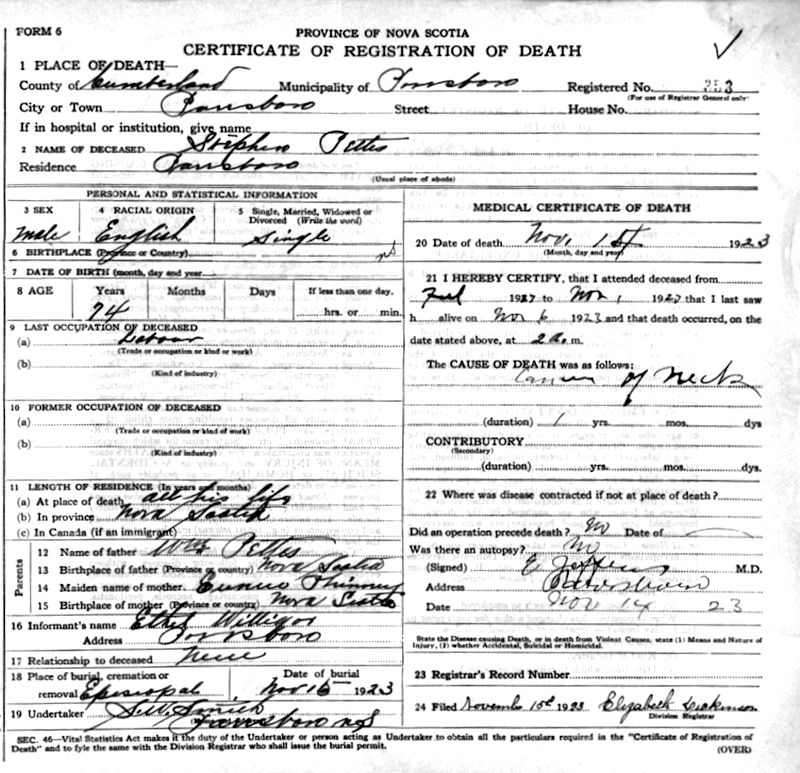 FORM 6
PROVINCE OF NOVA SCOTIA
CERTIFICATE OF REGISTRATION OF DEATH
1 PLACE OF DEATH—
County of Cumberland Municipality of Parrsboro Registered No. 353
(For use of Registrar General only)
City or Town Parrsboro Street House No.
If in hospital or institution, give name
2 NAME OF DECEASED Stephen Pettes
Residence Parrsboro
(Usual place of abode)
PERSONAL AND STATISTICAL INFORMATION
3 SEX 4 RACIAL ORIGIN 5 Single, Married, Widowed or Divorced (Write the word)
Male English Single
6 BIRTHPLACE (Province or Country) NS
7 DATE OF BIRTH (month, day and year
8 AGE Years Months Days If less than one day,
74 hrs. or min.
9 LAST OCCUPATION OF DECEASED
(a) Labour
(Trade or occupation or kind or work)
(b)
(Kind of industry)
10 FORMER OCCUPATION OF DECEASED
(a)
(Trade or occupation or kind of work)
(b)
(Kind of industry)
11 LENGTH OF RESIDENCE (In years and months)
(a) At place of death all his life
(b) In province Nova Scotia
(c) In Canada (if an immigrant)
Parents
12 Name of father Wm Pettes
13 Birthplace of father (Province or country) Nova Scotia
14 Maiden name of mother Eunice Phinney
15 Birthplace of mother (Province or country) Nova Scotia
16 Informant's name Ethel
Address Parrsboro
17 Relationship to deceased Niece
18 Place of burial, cremation or removal Episcopal Date of burial Nov 1923
19 Undertaker Smith
Parrsboro NS
MEDICAL CERTIFICATE OF DEATH
20 Date of death Nov. 1923
(Month, day and year)
21 I HEREBY CERTIFY, that I attended deceased from
19 to Nov, 19 that I last saw
h alive on Nov 6 1923 and that death occurred, on
date stated above, at 2 m.
The CAUSE OF DEATH was as follows:
Cancer of Neck
(duration) 1 yrs. mos. dys
CONTRIBUTORY
(Secondary)
(duration) yrs. mos. dys.
22 Where was disease contracted if not at place of death?
Did an operation precede death? No Date of
Was there an autopsy? No
(Signed) M.D.
Address Parrsboro
Date Nov 14 23
State the Disease causing Death, or in death from Violent Causes, state (1) Means and Nature of
Injury, (2) whether Accidental, Suicidal or Homicidal.
23 Registrar's Record Number
24 Filed November 15 1923 Elizabeth Dickinson
Division Registrar
SEC. 46—Vital Statistics Act makes it the duty of the Undertaker or person acting as Undertaker to obtain all the particulars required in the "Certificate of Registration of
Death" and to fyle the same with the Division Registrar who shall issue the burial permit.
(OVER)